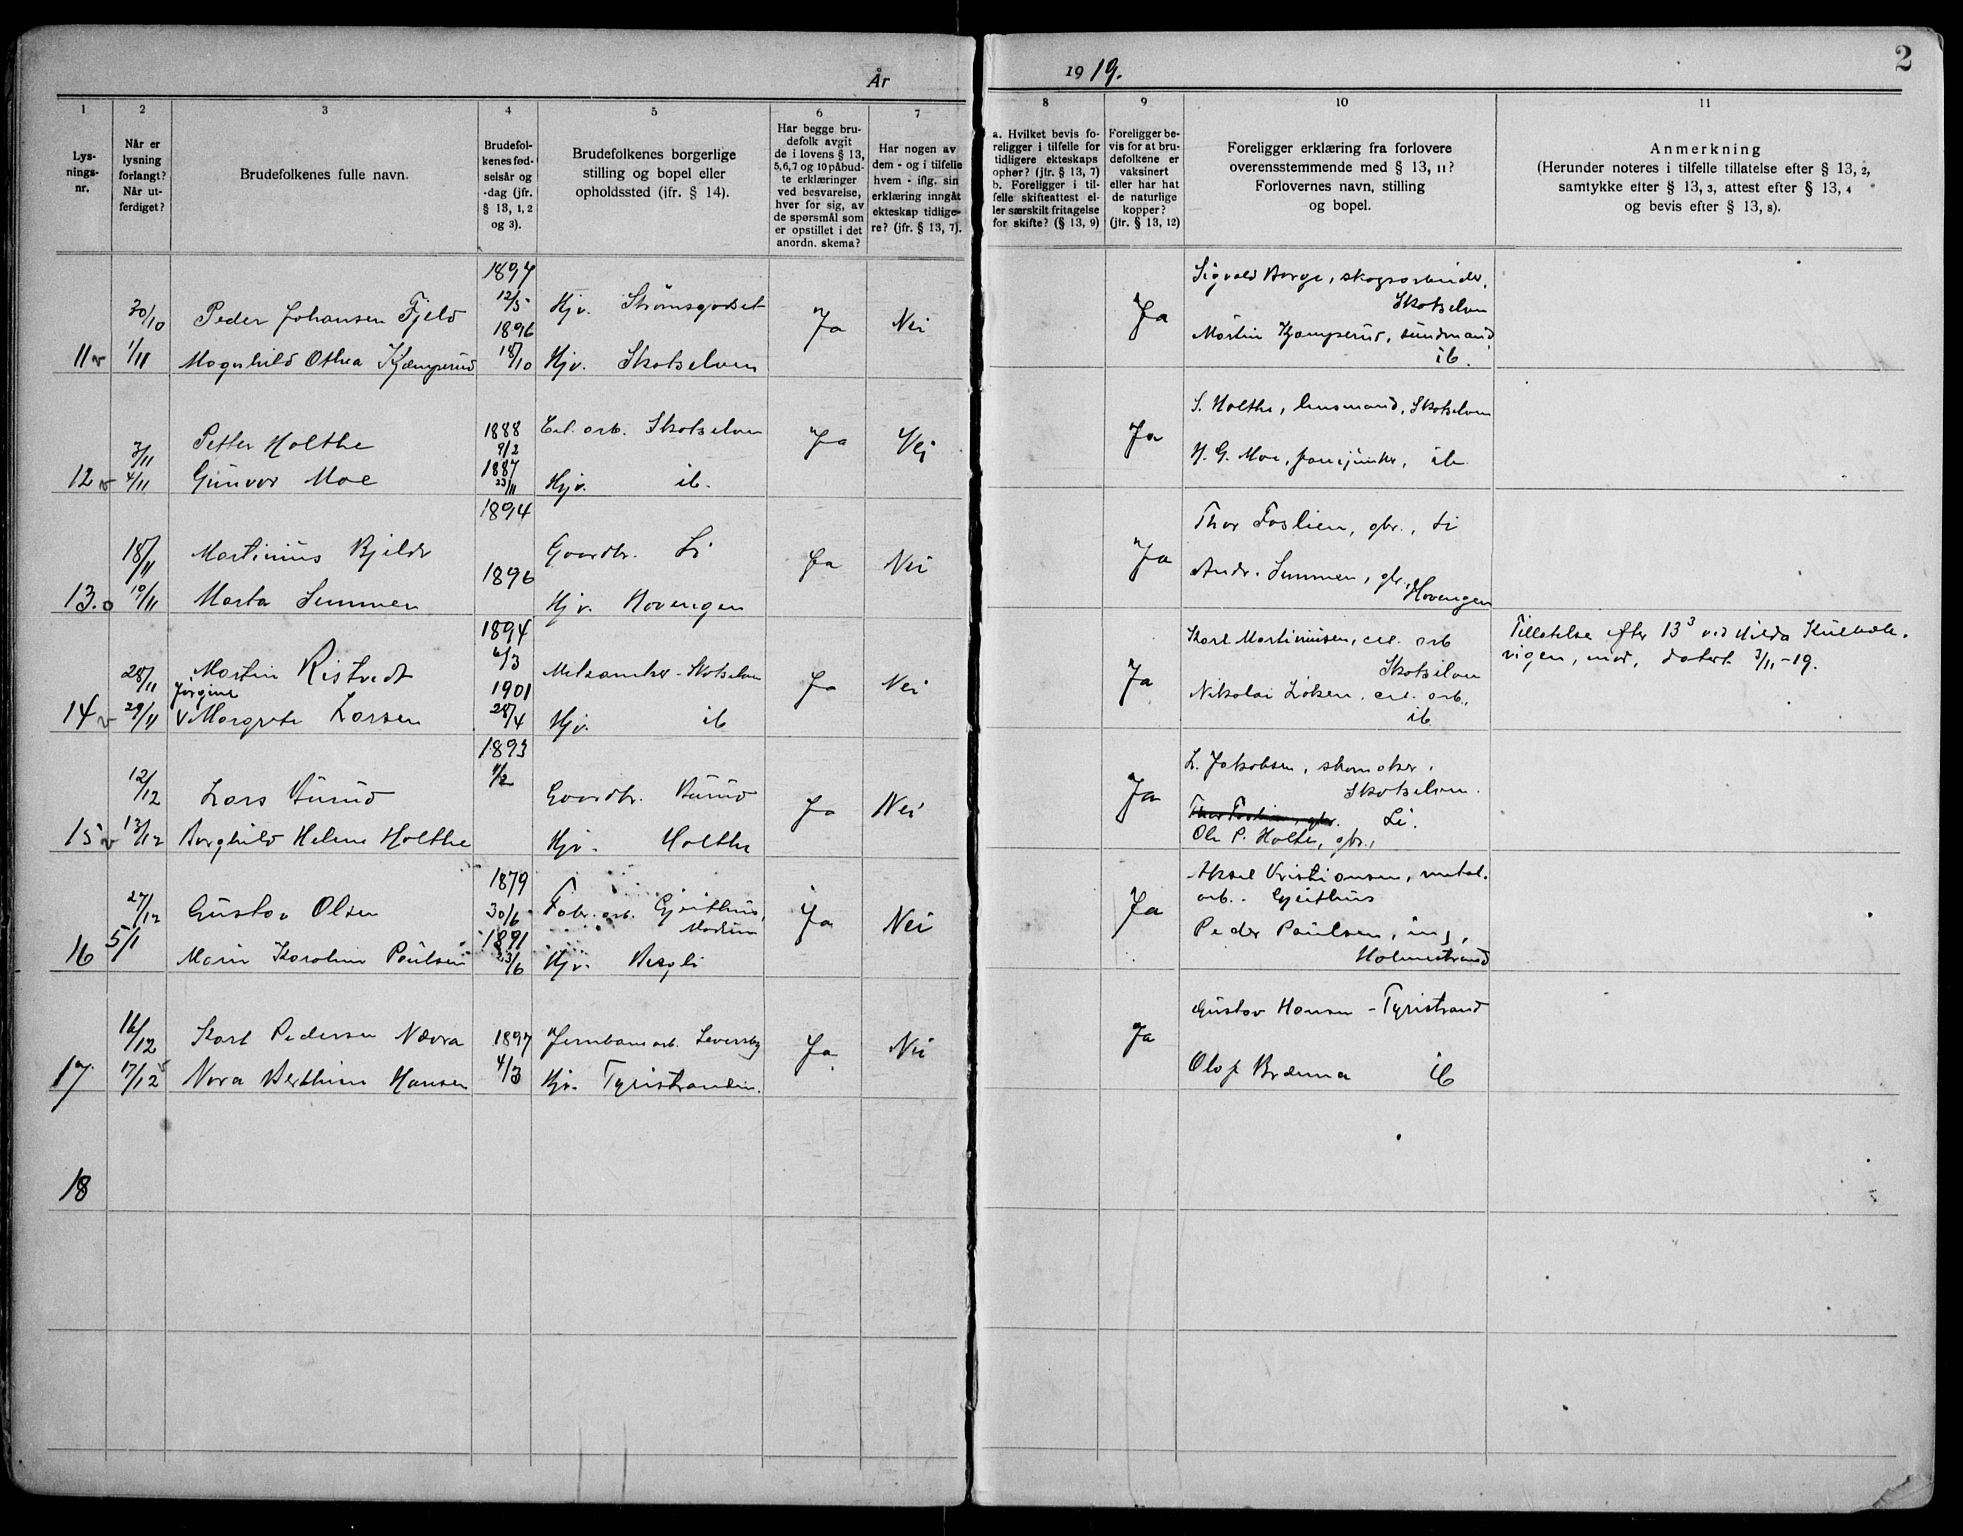 År
1919.
2
1
2
3
4
5
6
7
8
9
10
11
Lys-
nings-
nr.
Når er
lysning
forlangt?
Når ut-
ferdiget?
Brudefolkenes fulle navn.
Brudefol-
kenes fød-
selsår og
-dag (jfr.
§ 13, 1, 2
og 3).
Brudefolkenes borgerlige
stilling og bopel eller
opholdssted (ifr. § 14).
Har begge bru-
defolk avgit
de i lovens § 13,
5,6,7 og 10 påbud-
te erklæringer
ved besvarelse,
hver for sig, av
de spørsmål som
er opstillet i det
anordn. skema?
Har nogen av
dem - og i tilfelle
hvem - iflg. sin
erklæring inngåt
ekteskap tidlige-
re? (jfr. § 13, 7).
a. Hvilket bevis fo-
religger i tilfelle for
tidligere ekteskaps
ophør? (jfr. § 13, 7)
b. Foreligger i til-
felle skifteattest el-
ler særskilt fritagelse
for skifte? (§ 13, 9)
Foreligger be-
vis for at bru-
defolkene er
vaksinert
eller har hat
de naturlige
kopper?
(jfr. § 13, 12)
Foreligger erklæring fra forlovere
overensstemmende med § 13, 11?
Forlovernes navn, stilling
og bopel.
Anmerkning
(Herunder noteres i tilfelle tillatelse efter § 13, 2,
samtykke efter § 13, 3, attest efter § 13, 4
og bevis efter § 13, 8).
11 30/10 Peder Johansen Fjeld 1897 12/5 Hjv. Strømsgodset Ja Nei Ja
1/11 Magnhild Othea Kjæmperud 1896 18/10 Hjv. Skotselven
Sigvald Berge, skogsarbeider,
Skotselven
Martin Kjæmperud, sundmand
ib.
12 3/11 Petter Holthe 1888 9/2 Cel. arb. Skotselven Ja Nej Ja
4/11 Gunvor Moe 1887 23/11 Hjv. ib.
S. Holthe, lensmand, Skotselven
H. G. Moe, ib.
13. 18/11 Martinius Bjelde 1894 Gaardbr. Li Ja Nei Ja
19/11 Marta Semmen 1896 Hjv. Hovengen
Thor Foslien, gbr., Li
Andr. Semmen, gbr.,
Hovengen
14 28/11 Martin Ristvedt 1894 6/3 Skotselven Ja Nei Ja
Jørgine
29/11 V Margrete Larsen 1901 28/4 Hjv. ib
Karl Martiniusen, cel. arb
Skotselven
Nikolai Larsen, cel. arb.,
ib.
Tillatelse efter 13 3 ved Hilda
vigen, mor, datert 3/11-19.
15 12/12 Lars Burud 1893 11/2 Gaardbr. Burud Ja Nei Ja
13/12 Borghild Helene Holthe Hjv. Holthe
L. Jakobsen, skomaker,
Skotselven.
Thor Foslien, gbr. Li.
Ole P. Holte, gbr.,
16 27/12 Gustav Olsen 1879 30/6 Fabr. arb. Gjeithus, Ja Nei Ja
Modum
5/1 Marie Karoline Paulsen 1891 23/6 Hjv. Bergli
Aksel Kristiansen, metal.
arb. Gjeithus
Peder Paulsen, ing,
Holmestrand
17. 16/12 Karl Pedersen Nævra 1897 4/3 Jernbanearb. Ja Nei Ja
17/12 Nora Berthine Hansen Hjv. Tyristranden.
Gustav Hansen - Tyristrand
Olaf Bræenna ib
18